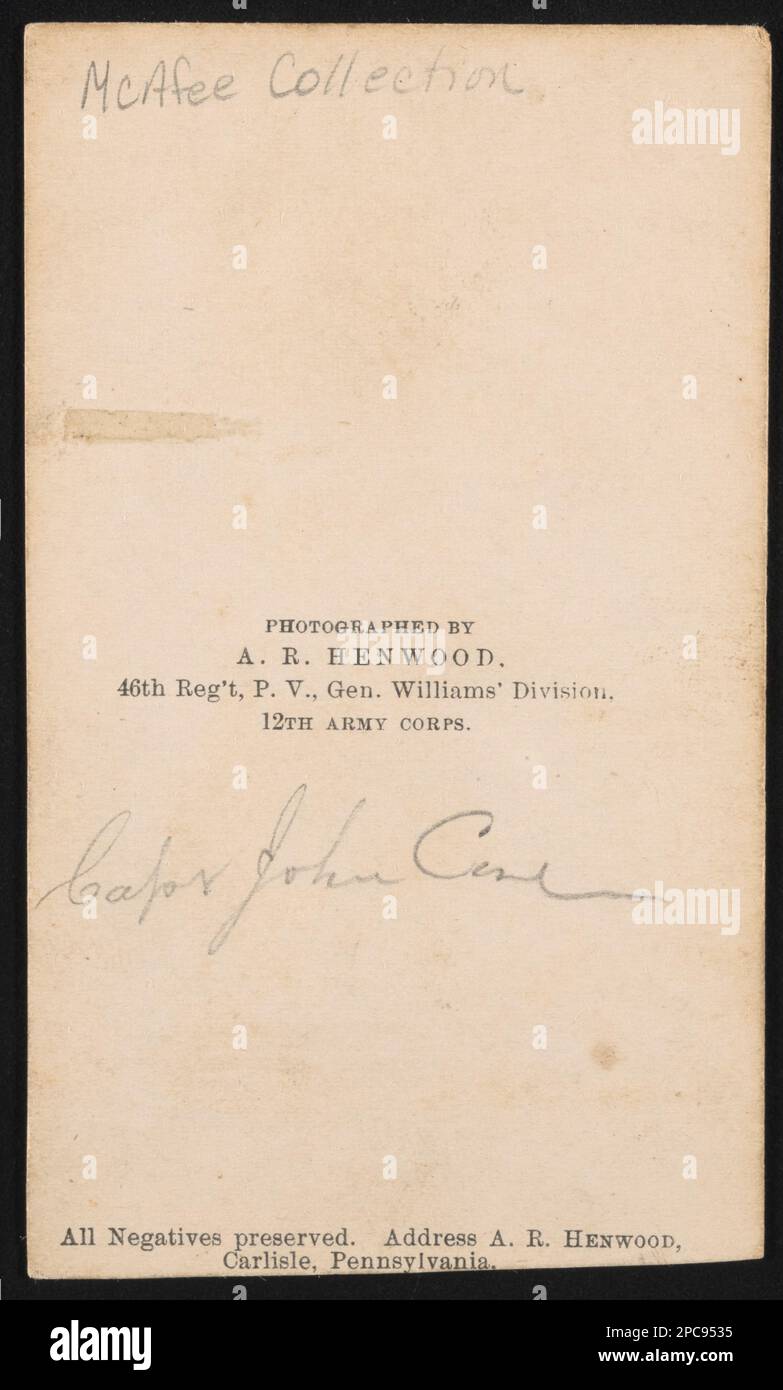 McAfee Collection
alamy
PHOTOGRAPHED BY
A. R. HENWOOD,
46th Reg't, P. V., Gen. Williams' Division,
12TH ARMY CORPS.
Capt John
alamy
All Negatives preserved. Address A. R. HENWOOD,
Carlisle, Pennsylvania.
alamy
Image ID: 2PC9535
www.alamy.com